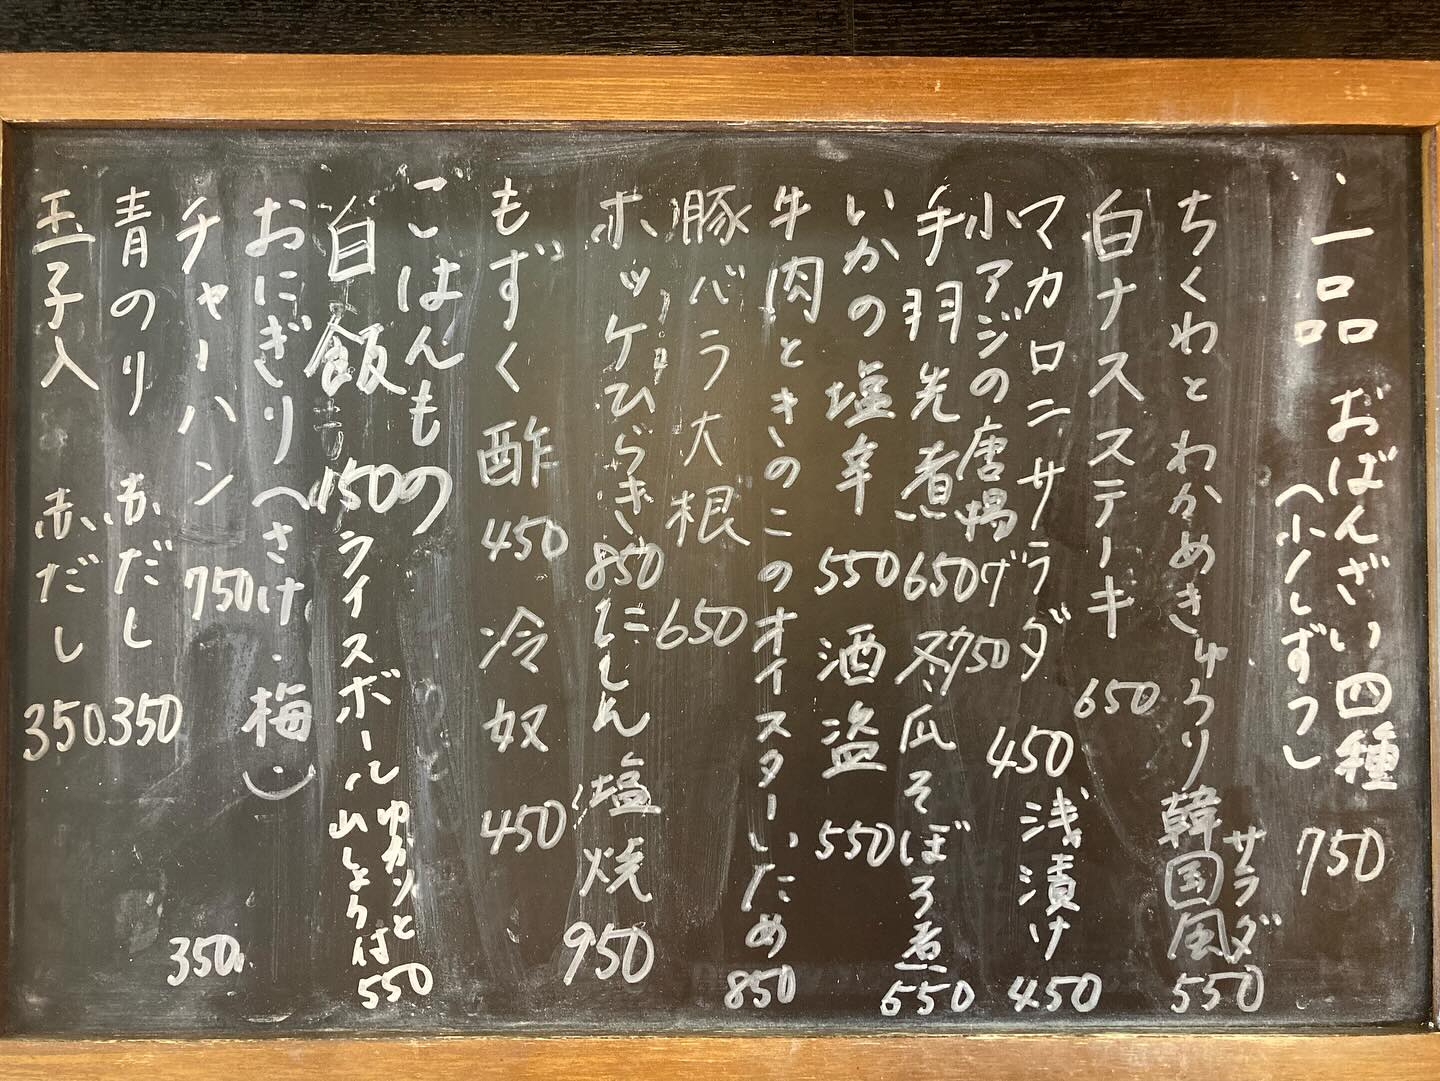 一品 おばんざい四種 750
(少しずつ)
ちくわとわかめきゅうり韓国風サラダ 550
白ナスステーキ 650
マカロニサラダ 450 浅漬け 450
小アジの唐揚げ 750
手羽先煮 650 冬瓜そぼろ煮 550
いかの塩辛 550 酒盗 550
牛肉ときのこのオイスターいため 850
豚バラ大根 650
ホッケひらき 850 にしん塩焼 950
もずく酢 450 冷奴 450
ごはんもの
白飯 150 ライスボールゆかりと山しょう付 550
おにぎり(さけ・梅) 350
チャーハン 750
青のり 赤だし 350
玉子入 赤だし 350